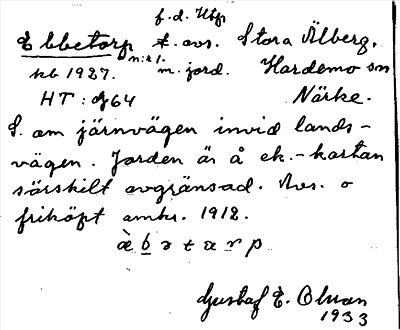 f.d. Utjo
Ebbetorp t. avs. Stora Älberg,
n:r 1.
hb 1927. m. jord. Hardemo sn
HT: dj 64 Närke.
S. om järnvägen invid lands-
vägen. Jorden är å ek.-kartan
särskilt avgränsad. Avs. o
friköpt omkr. 1912.
æ̀ b ə t a r p
Gustaf E. Olsson
1933